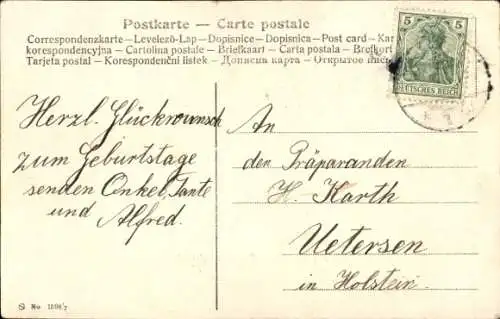 Postkarte — Carte postale
Correspondenzkarte – Levelező-Lap – Dopisnice – Dopisnica – Post card – Kar
korespondencyjna – Cartolina postale – Briefkaart – Carta postala – Brefkort
Tarjeta postal – Korespondenční listek – Дописна карта – Открытое
5 5
DEUTSCHES REICH
Herzl. Glückwunsch
zum Geburtstage
senden Onkel, Tante
und Alfred.
An
den Präparanden
H. Karth
Uetersen
in Holstein.
No.